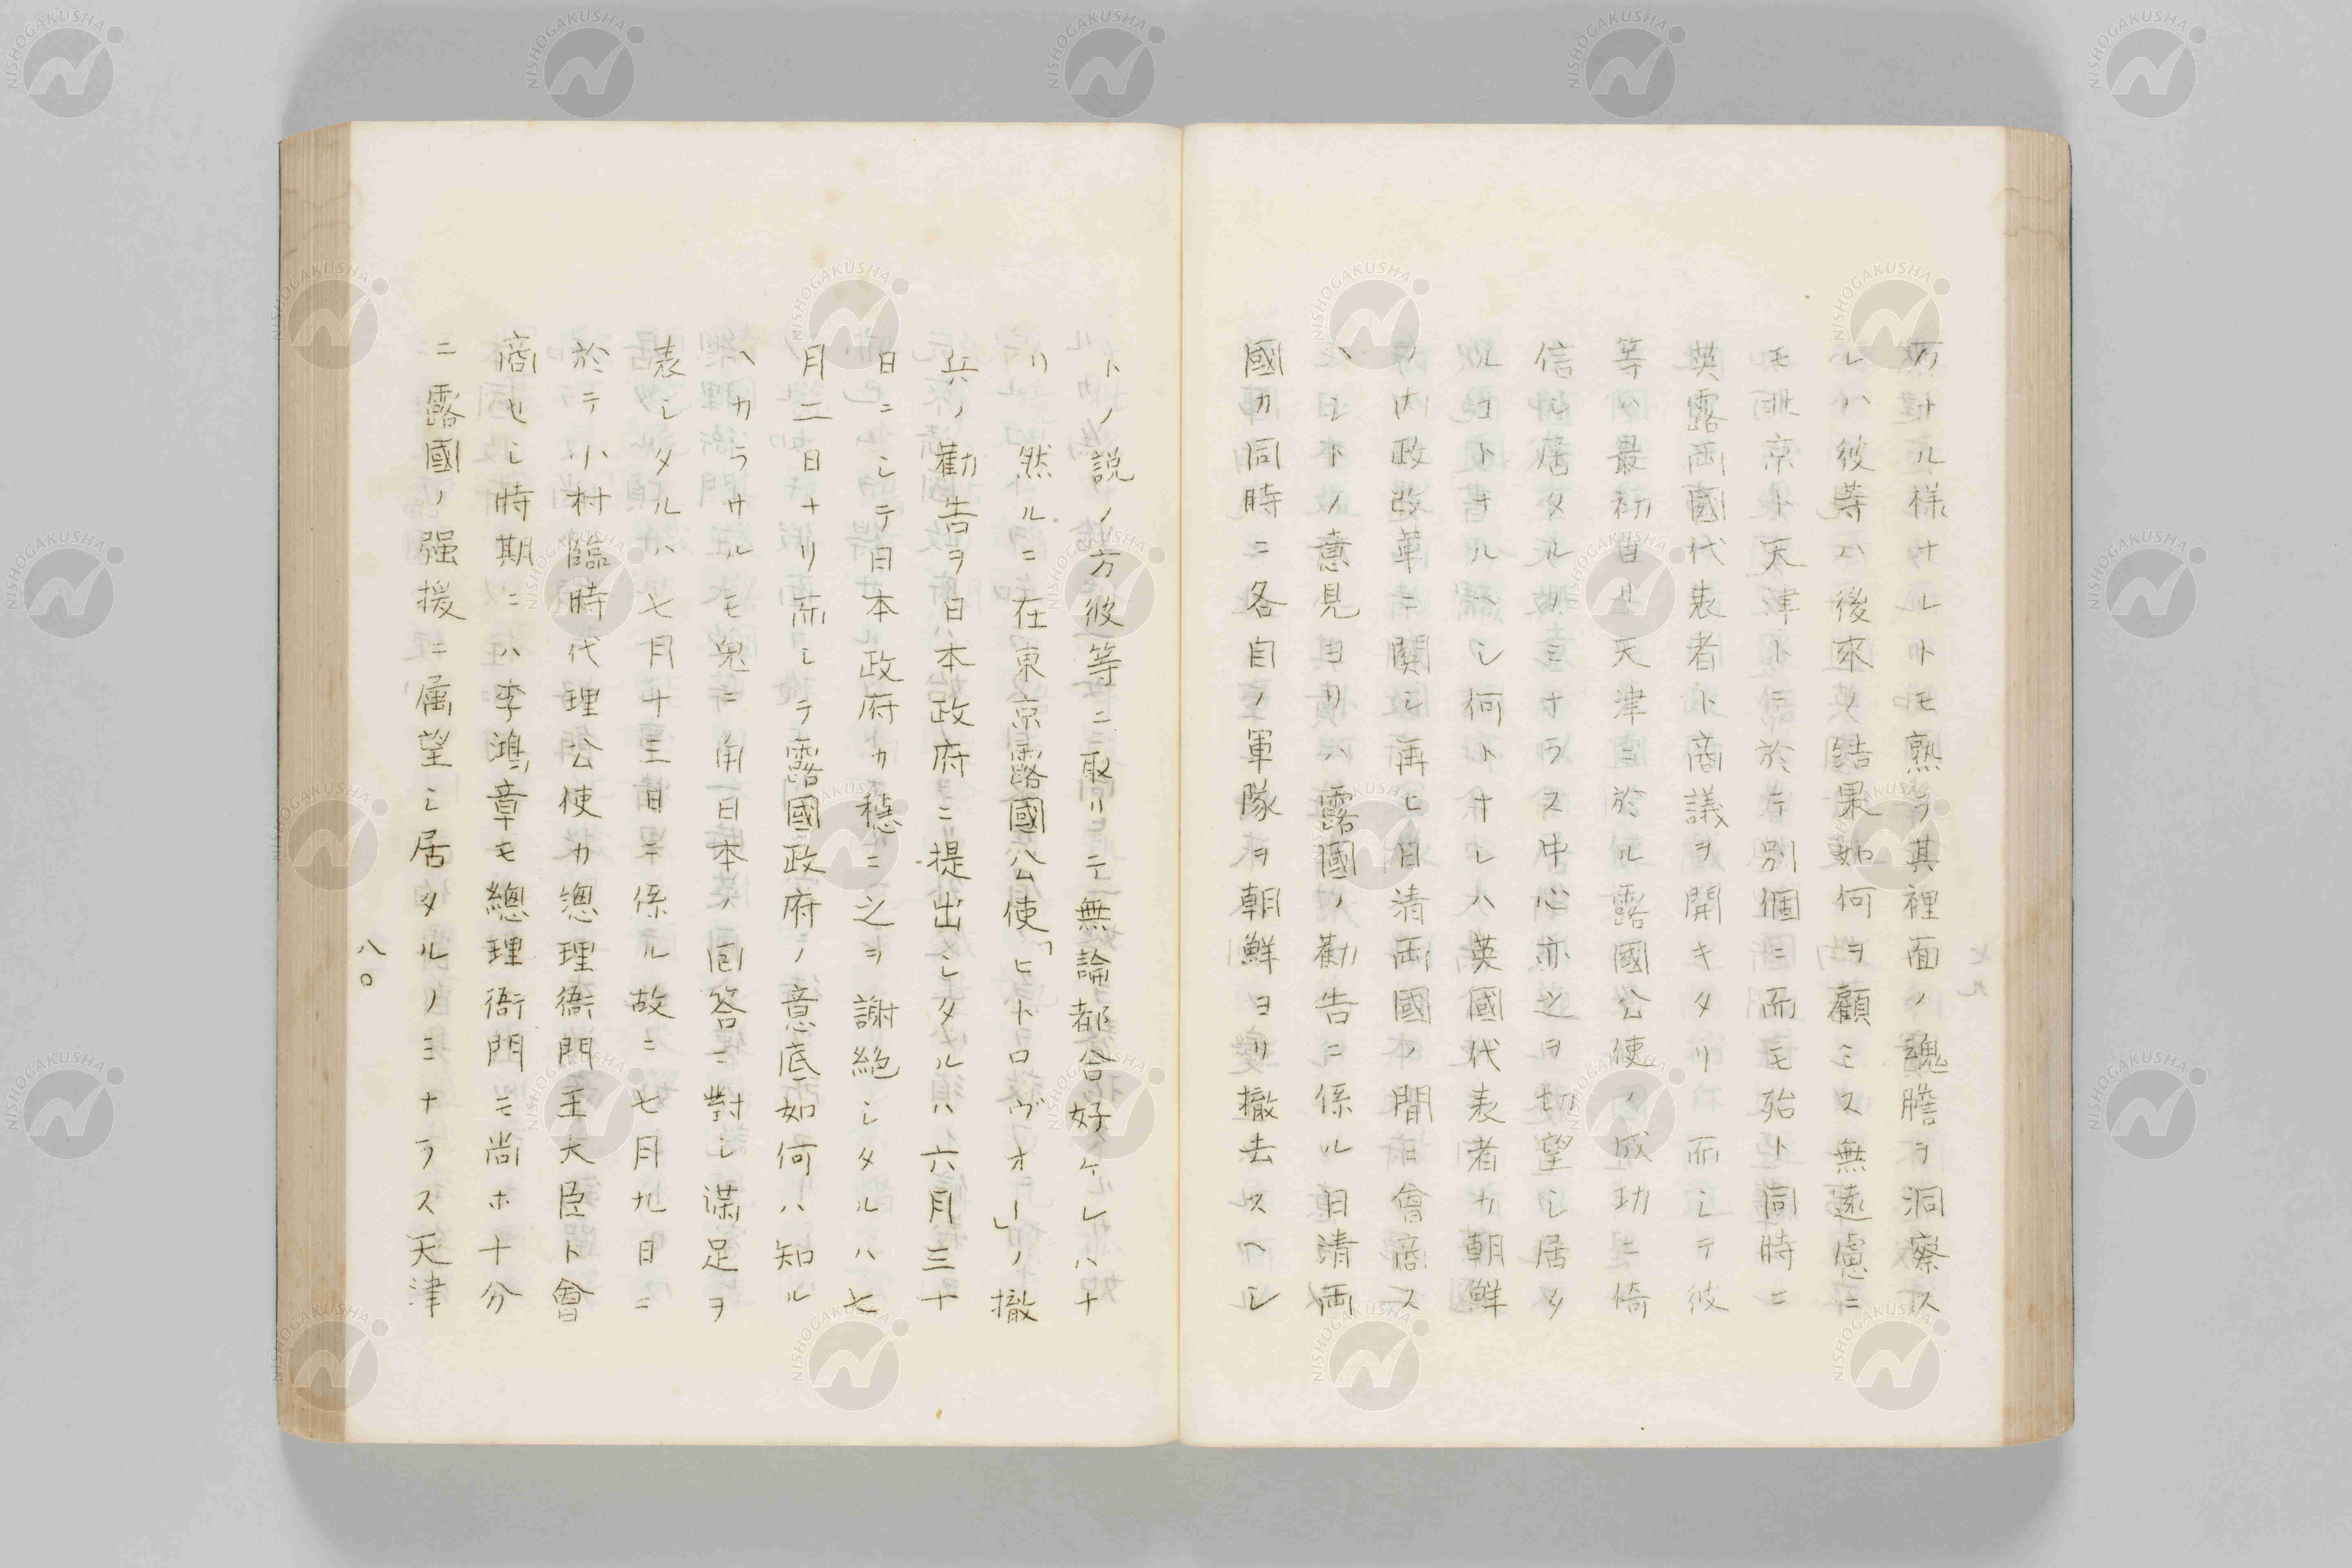 万ナル様ナレトモ熟ラ其裡面ノ魂膽ヲ洞察ス
レハ彼等ハ後來ノ結果如何ヲ顧ミス無遠慮ニ
モ北京ト天津トニ於テ別個ニ而モ殆ト同時ニ
英露両國代表者ト商議ヲ開キタリ而シテ彼
等ハ最初ヨリ天津ニ於ル露國公使ノ成功ニ倚
信シ居タルノミナラス中心亦之ヲ切望シ居タ
ルコトナルヘシ何トナレハ英國代表者カ朝鮮
ノ内政改革ニ関シ再ヒ日清両國ノ間ニ會商ス
ヘシトノ意見ヨリハ露國ノ勸告ニ係ル日清両
國カ同時ニ各自ノ軍隊ヲ朝鮮ヨリ撤去スヘシ
七九
トノ説ノ方彼等ニ取リテ無論都合好ケレハナ
リ然ルニ在東京露國公使「ヒトロヴオー」ノ撤
兵ノ勸告ヲ日本政府ニ提出シタルハ六月三十
日ニシテ日本政府カ穩ニ之ヲ謝絶シタルハ七
月二日ナリ而シテ露國政府ノ意底如何ハ知ル
ヘカラサルモ兎ニ角日本ノ回答ニ對シ滿足ヲ
表シタルハ七月十三日ニ係ル故ニ七月九日ニ
於テ小村臨時代理公使カ總理衙門王大臣ト會
商セシ時期ニハ李鴻章モ總理衙門モ尚ホ十分
ニ露國ノ强援ニ属望シ居タルノミナラス天津
八〇
NISHOGAKUSHA